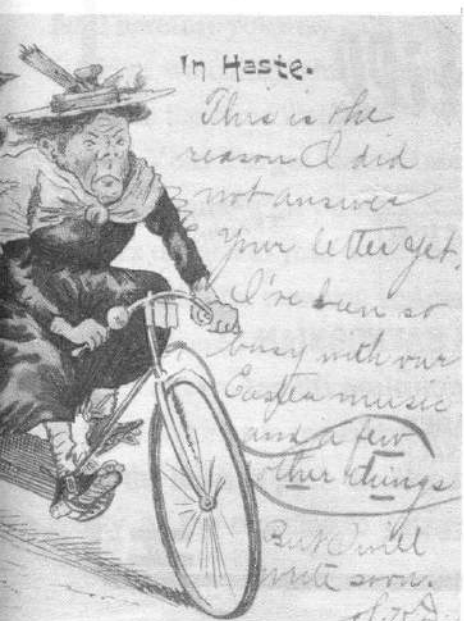 In Haste.
This is the
reason I did
not answer
your letter yet.
I've been so
busy with our
Easter music
and a few
other things
But I will
write soon.